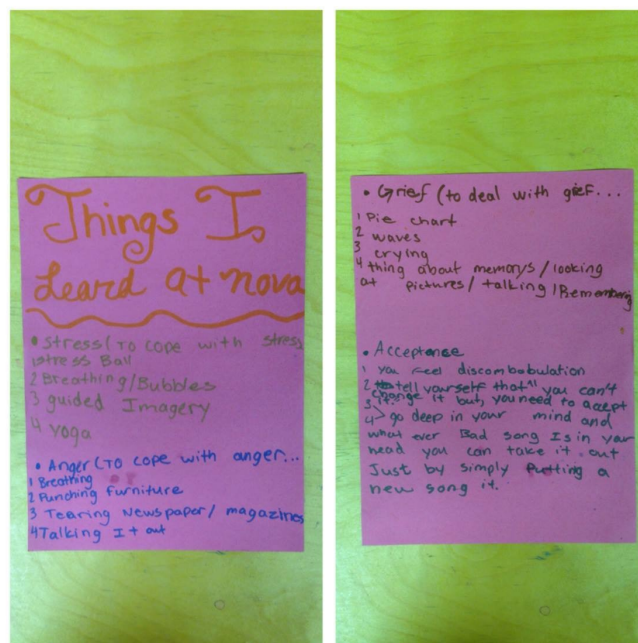 Things I
Leard at nova
• Stress (To cope with stress
1 stress Ball
2 Breathing/Bubbles
3 guided Imagery
4 yoga
• Anger (To cope with anger...
1 Breathing
2 Punching furniture
3 Tearing Newspaper/ magazines
4 Talking It out
• Grief (to deal with grief...
1 Pie chart
2 waves
3 crying
4 thing about memorys/looking
at pictures/ talking/Remembering
• Acceptance
1 you feel discombobulation
2 tell yourself that "you can't
change it but, you need to accept
3 it"
4 > go deep in your mind and
what ever Bad song Is in your
head you can take it out
Just by simply Putting a
new song it.